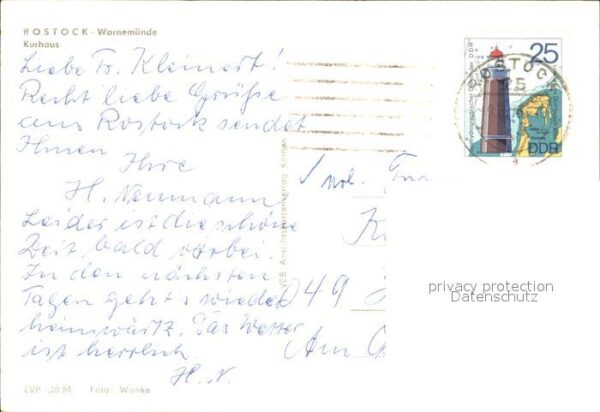 ROSTOCK - Warnemünde
Kurhaus
Liebe Fr. Kleinert!
Recht liebe Grüße
aus Rostock sendet
Ihnen
Ihre
H. Neumann
Leider ist die schöne
Zeit bald vorbei.
In den nächsten
Tagen geht's wieder
heimwärts. Das Wetter
ist herrlich.
H. N.
EVP -,20 M Foto: Wanke
VEB Ansichtskartenverlag
25
DDR
ROSTOCK
049
Am
privacy protection
Datenschutz